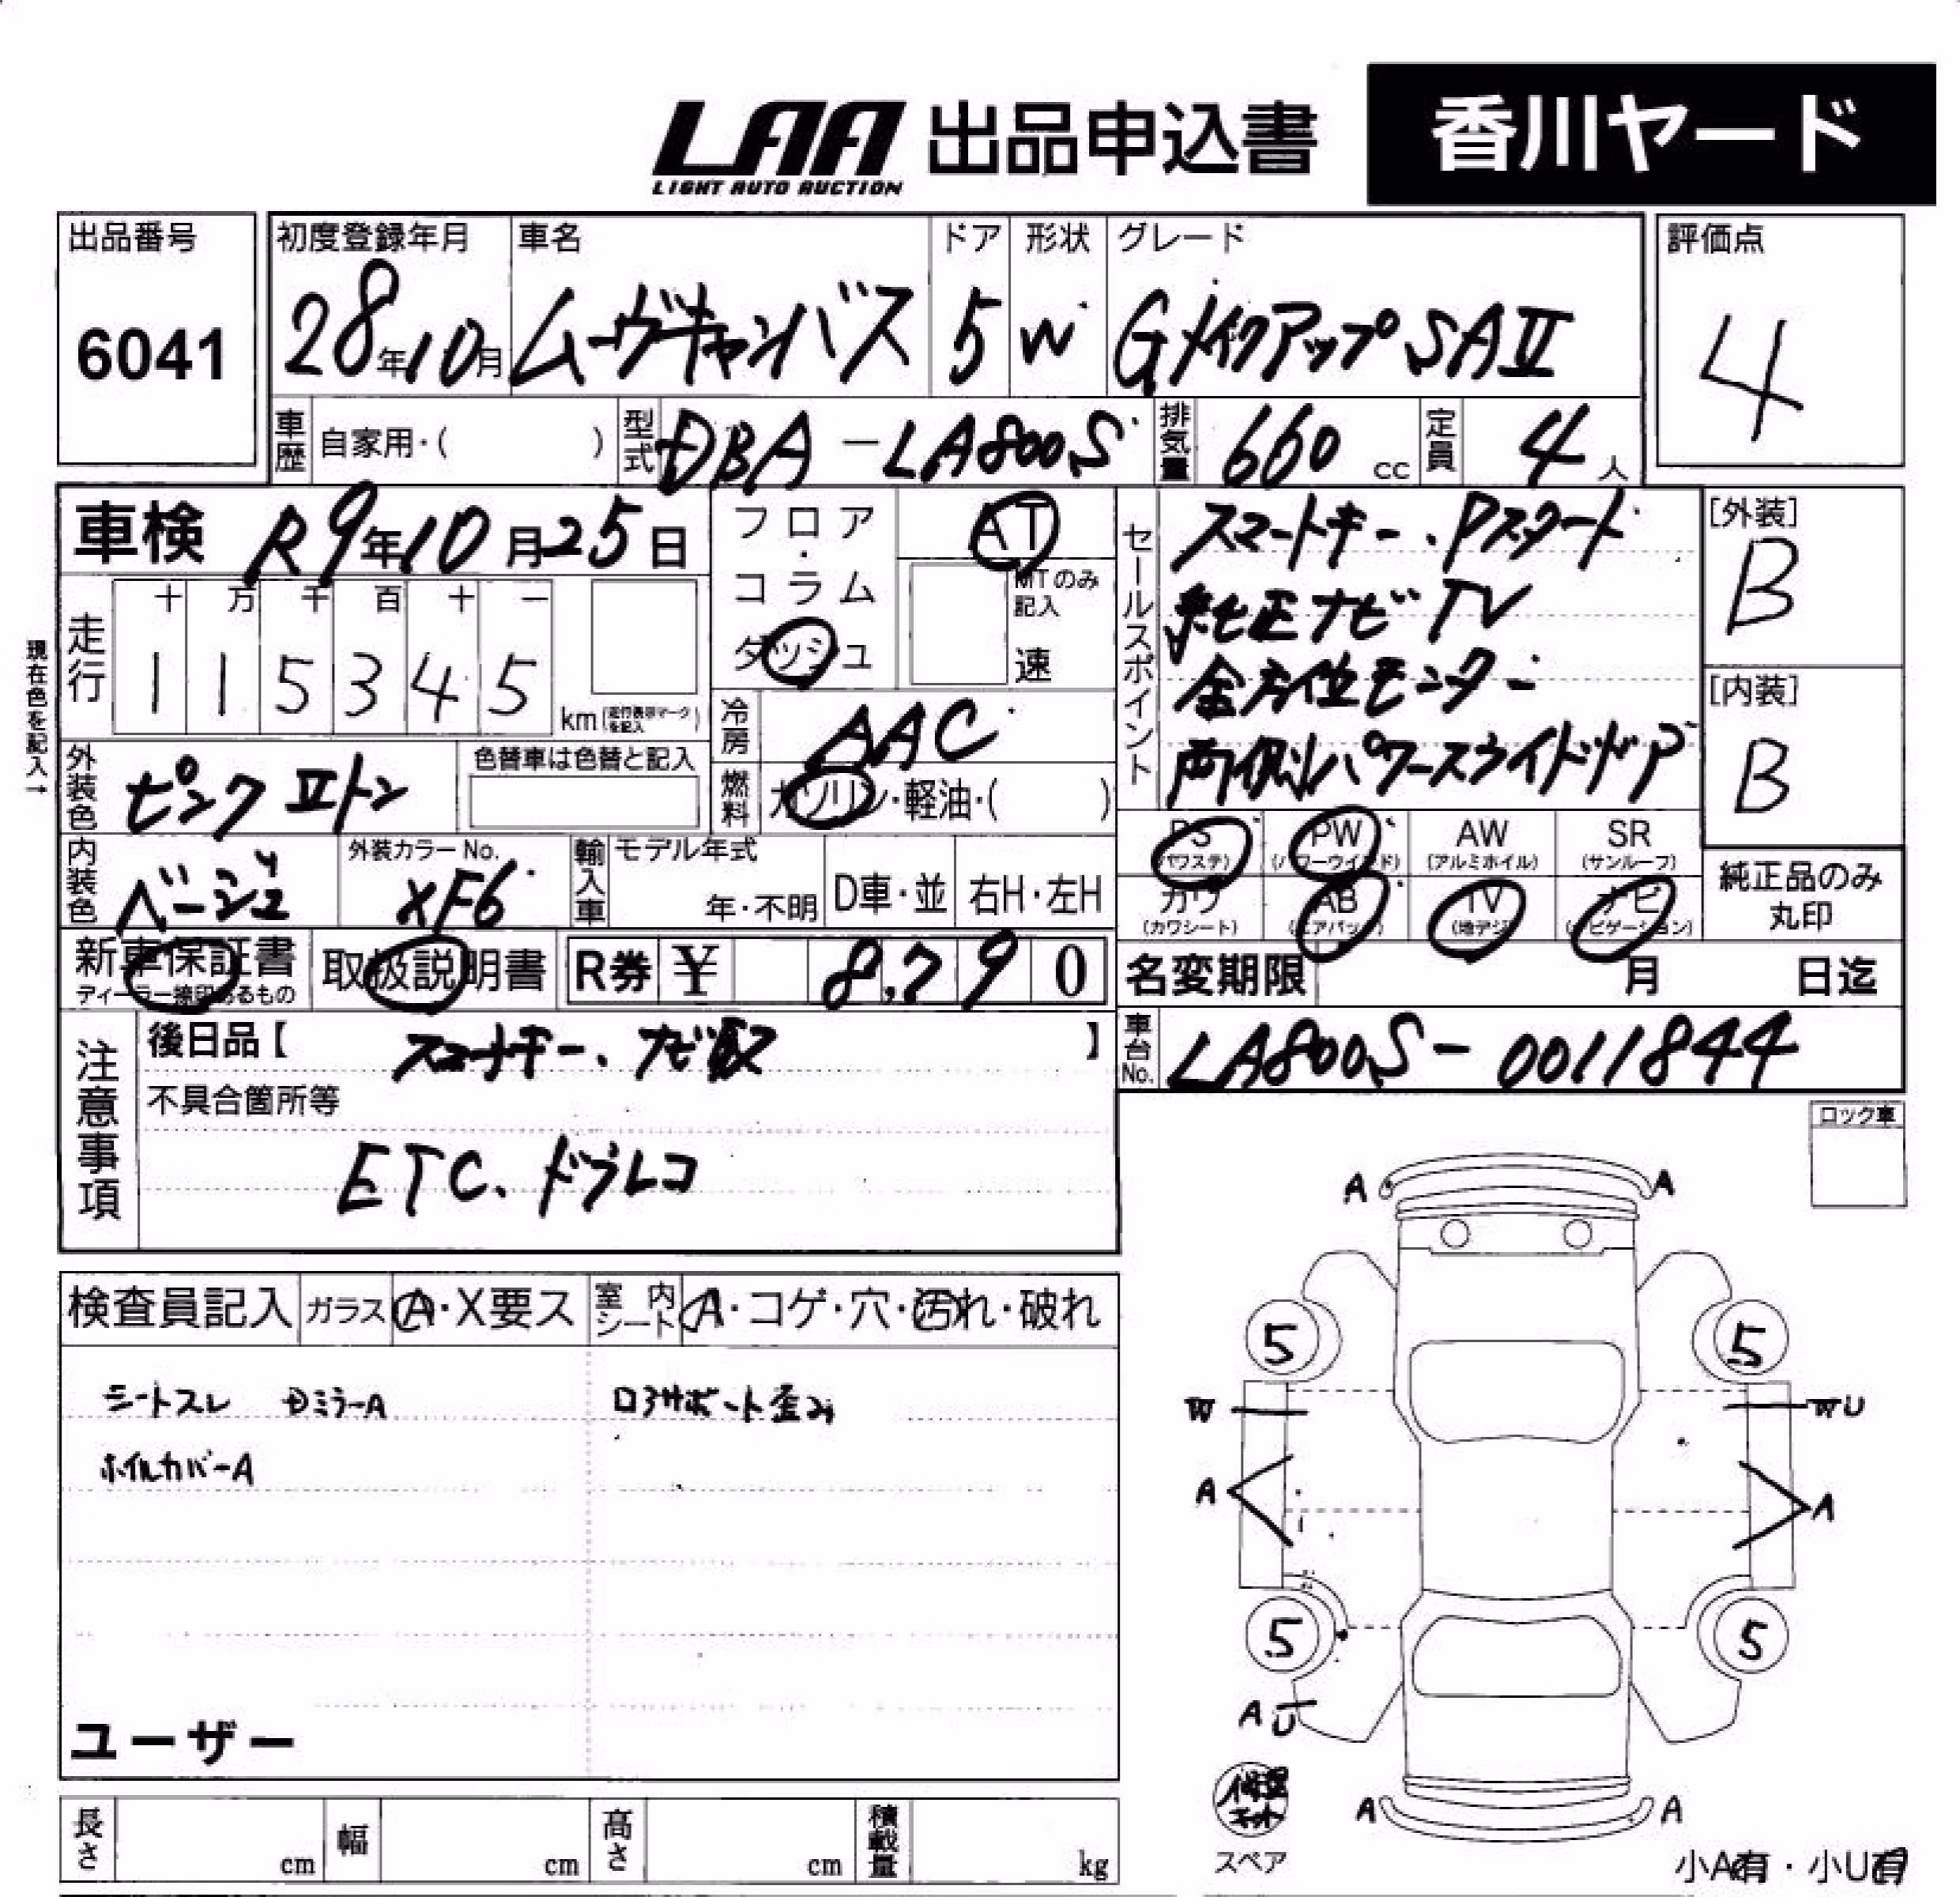 LAA 出品申込書 香川ヤード
LIGHT AUTO AUCTION
出品番号 初度登録年月 車名 ドア 形状 グレード 評価点
6041 28年10月 ムーヴキャンバス 5 W GメイクアップSAⅡ 4
車歴 自家用・( ) 型式 DBA-LA800S 排気量 660 cc 定員 4人
車検 R9年10月25日 フロア・コラム ダッシュ AT
MTのみ記入 速
セールスポイント スマートキー.Pスタート
純正ナビTV
全方位モニター
両側パワースライドドア
[外装]
B
[内装]
B
現在色を記入→
走行 十 万 千 百 十 一
1 1 5 3 4 5 km(走行表示マークを記入)
冷房 AAC
外装色 ピンクⅡトン 色替車は色替と記入 燃料 ガソリン・軽油・( )
PS PW AW SR
(パワステ) (パワーウインド) (アルミホイル) (サンルーフ)
カワ AB TV ナビ
(カワシート) (エアバック) (地デジ) (ナビゲーション)
純正品のみ
丸印
内装色 ベージュ 外装カラーNo. XF6 輸入車 モデル年式 年・不明 D車・並 右H・左H
新車保証書 取扱説明書 R券 ¥ 8,790 名変期限 月 日迄
ディーラー捺印あるもの
注意事項 後日品【 スマートキー、ナビ取 】 車台No. LA800S-0011844
不具合箇所等
ETC、ドラレコ
ロック車
検査員記入 ガラス A・X要ス 室内シート A・コゲ・穴・汚れ・破れ
シートスレ Dミラ-A ロアサポート歪み
ホイルカバーA
ユーザー
長さ cm 幅 cm 高さ cm 積載量 kg
A A
5 5
W WU
A A
5 5
AU
修理キット
スペア
A A
小A有・小U有